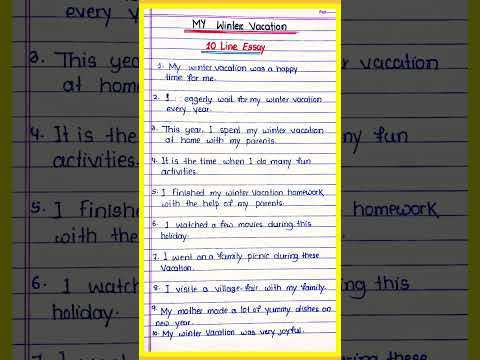 MY Winter Vacation
10 Line Essay
1. My winter vacation was a happy
time for me.
2. I eggerly wait for my winter vacation
every year.
3. This year, I spent my winter vacation
at home with my parents.
4. It is the time when I do many fun
activities.
5. I finished my winter vacation homework,
with the help of my parents.
6. I watched a few movies during this
holiday.
7. I went on a family picnic during these
vacation.
8. I visite a village fair with my family.
9. My mother made a lot of yummy dishes on
new year.
10. My winter vacation was very joyful.
every y
3. This year
at home
4. It is the
activities.
5. I finished
with the
6. I watch
holiday.
my fun
homework,
ts.
ing this